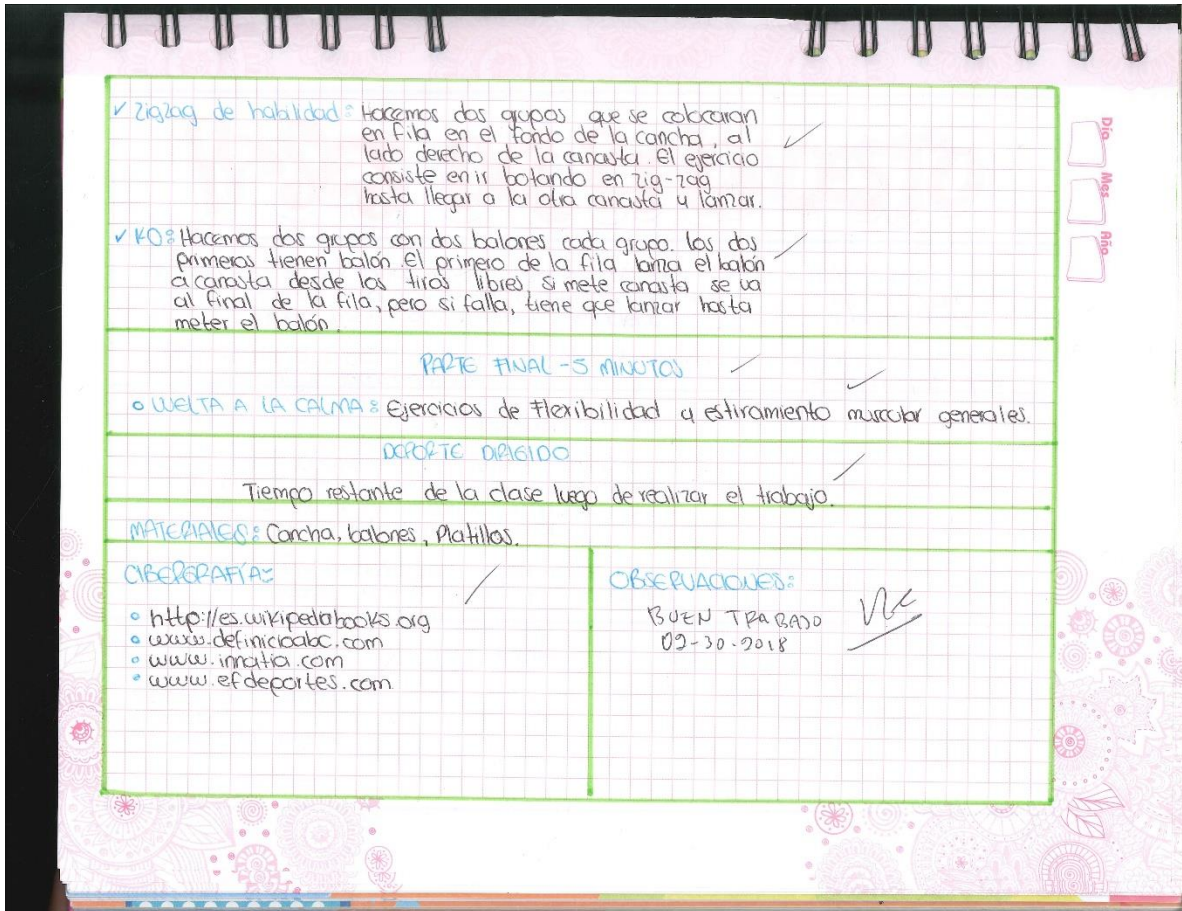 ✓ Zigzag de habilidad: Hacemos dos grupos que se colocaran
en fila en el fondo de la cancha, al
lado derecho de la canasta. El ejercicio
consiste en ir botando en zig-zag
hasta llegar a la otra canasta y lanzar.
✓ KO: Hacemos dos grupos con dos balones cada grupo. Los dos
primeros tienen balón. El primero de la fila lanza el balón
a canasta desde los tiros libres, si mete canasta se va
al final de la fila, pero si falla, tiene que lanzar hasta
meter el balón.
PARTE FINAL - 5 MINUTOS
o VUELTA A LA CALMA: Ejercicios de flexibilidad y estiramiento muscular generales.
DEPORTE DIRIGIDO
Tiempo restante de la clase luego de realizar el trabajo.
MATERIALES: Cancha, balones, Platillos.
CIBERGRAFÍA:
o http://es.wikipediabooks.org
o www.definicioabc.com
o www.innatia.com
o www.efdeportes.com
OBSERVACIONES:
BUEN TRABAJO
02-30-2018
Día Mes Año